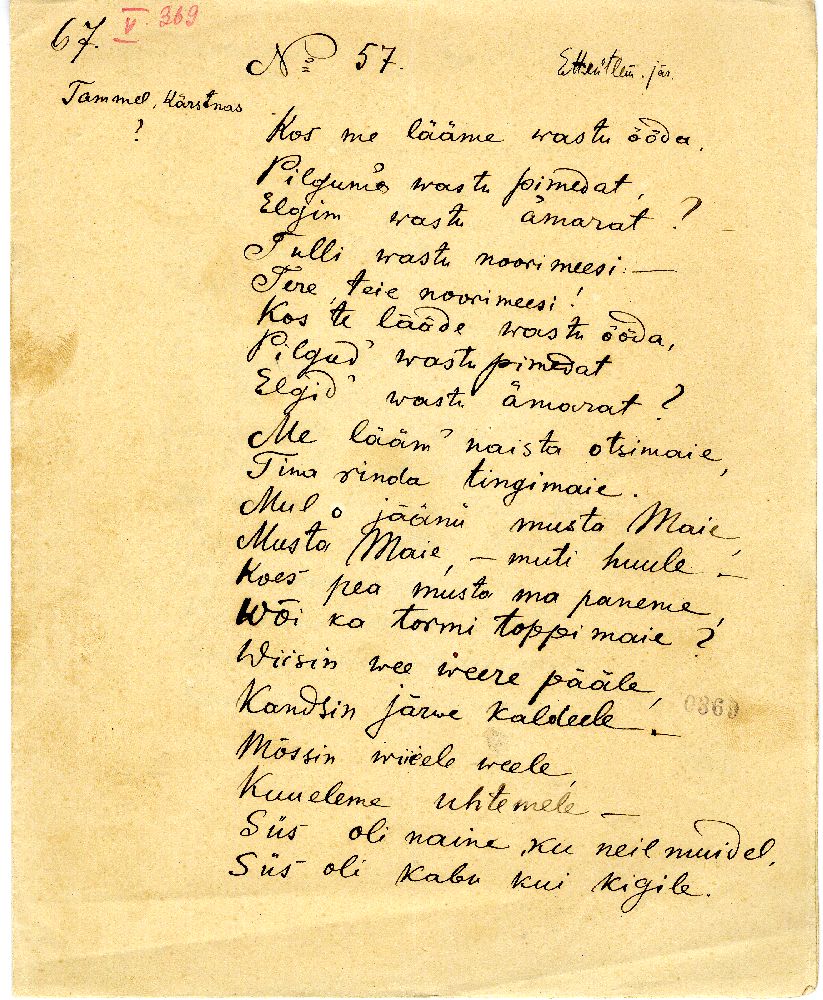 67. V 369
No 57.
jär.
Tammel, Kärstnas
?
Kos me lääme wastu ööda,
Pilgume wastu pimedat,
Elgim wastu ämarat?
Tulli wastu noorimeesi: —
Tere, teie noorimeesi!
Kos te lääde wastu ööda,
Pilgud' wastu pimedat
Elgid' wastu ämarat?
Me lääm' naista otsimaie,
Tina rinda tingimaie.
Mul o jäänü musta Maie,
Musta Maie, — muti huule —
Koes pea musta ma paneme,
Wõi ka tormi toppimaie?
Wiisin wee weere pääle,
Kandsin järwe kaldeele. —
Mõssin wiiele weele,
Kuueleme uhtemele —
Siis oli naine, ku neil muidel,
Siis oli kabu kui kigile.
0369